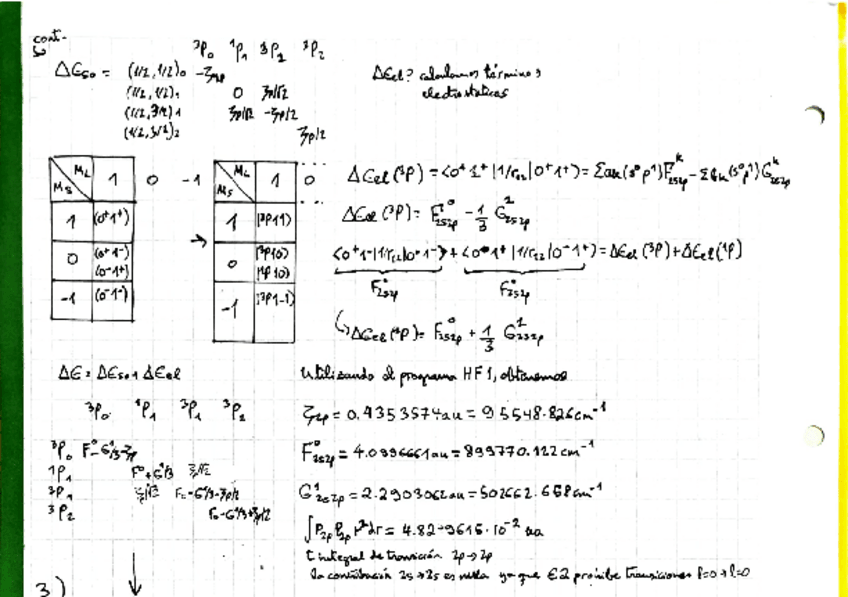 cont-
³P₀ ¹P₁ ³P₁ ³P₂
ΔE_SO = (1/2,1/2)₀ -ζ₂p
(1/2,1/2)₁ 0 ζp/√2
(1/2,3/2)₁ ζp/√2 -ζp/2
(1/2,3/2)₂ ζp/2
ΔEel? calculamos términos
electrostáticos
M_L M_S 1 0 -1
1 (0⁺1⁺)
0 (0⁺1⁻)
(0⁻1⁺)
-1 (0⁻1⁻)
→
M_L M_S 1 0
1 |³P11)
0 |³P10)
|¹P10)
-1 |³P1-1)
ΔEel(³P) = <0⁺1⁺|1/r₁₂|0⁺1⁺> = Σak(s⁰p¹)F^k_2s2p - Σbk(s⁰p¹)G^k_2s2p
ΔEel(³P) = F⁰_2s2p - 1/3 G¹_2s2p
<0⁺1⁻|1/r₁₂|0⁺1⁻> + <0⁻1⁺|1/r₁₂|0⁻1⁺> = ΔEel(³P) + ΔEel(¹P)
F⁰_2s2p F⁰_2s2p
↳ ΔEel(¹P) = F⁰_2s2p + 1/3 G¹_2s2p
ΔE = ΔE_SO + ΔEel
Utilizando el programa HF1, obtenemos
³P₀ ¹P₁ ³P₁ ³P₂
³P₀ F⁰-G¹/3-ζp
¹P₁ F⁰+G¹/3 ζ/√2
³P₁ ζ/√2 F₀-G¹/3-ζp/2
³P₂ F₀-G¹/3+ζp/2
ζ₂p = 0.4353574au = 95548.826cm⁻¹
F⁰_2s2p = 4.0996661au = 899770.122cm⁻¹
G¹_2s2p = 2.2903062au = 502662.658cm⁻¹
∫P₂pP₂p r²dr = 4.82 9616·10⁻² ua
integral de transición 2p→2p
la contribución 2s→2s es nula ya que E2 prohíbe transiciones l=0→l=0
3)